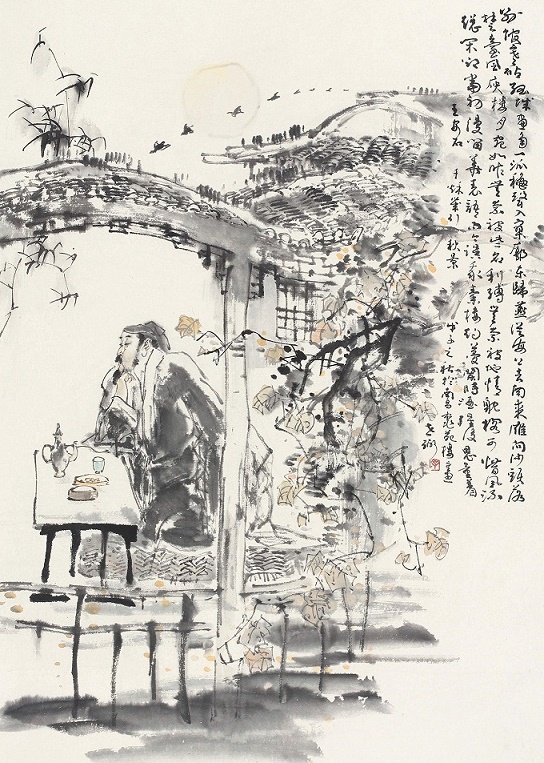 别馆寒砧孤城画角一派秋声入寥廓东归燕从海上去南来雁向沙头落
楚台风庾楼月宛如昨无奈被些名利缚无奈被他情耽搁可惜风流
总闲却当初漫留华表语而今误我秦楼约梦阑时酒醒后思量着
王安石 千秋岁引 秋景
戊子之秋於南昌苑楼画